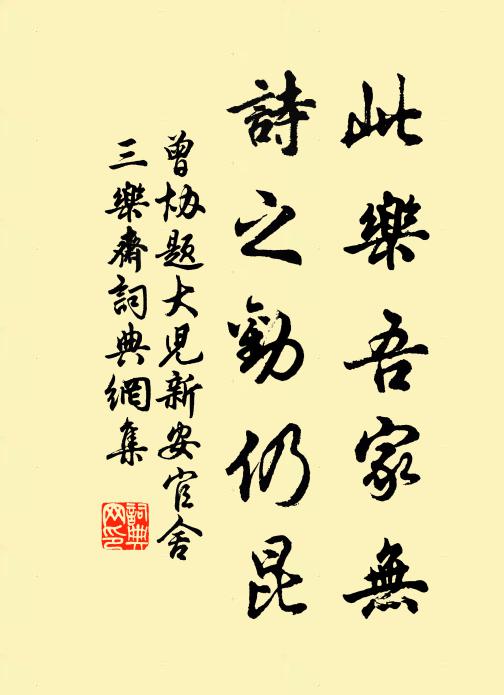 此樂吾家無
詩之勤仍昆
曾协題大児新安官舍
三樂齋詞典網集
詞典
网印